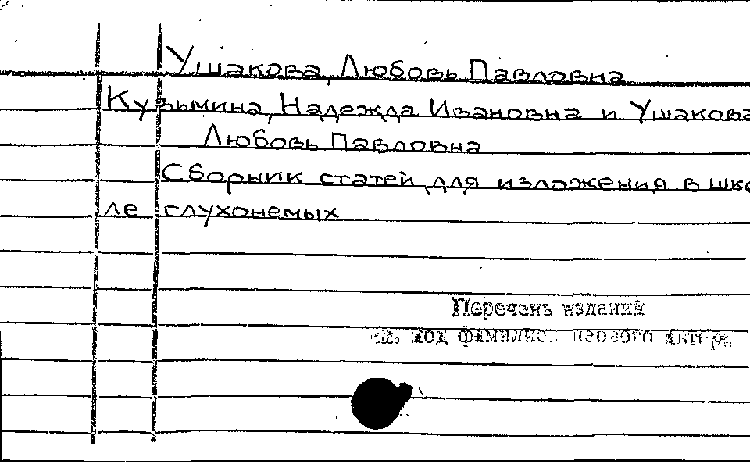 Ушакова, Любовь Павловна
Кузьмина, Надежда Ивановна и Ушакова
Любовь Павловна
Сборник статей для изложения в шко
ле глухонемых
Перечень изданий
см. под фамилией первого автора